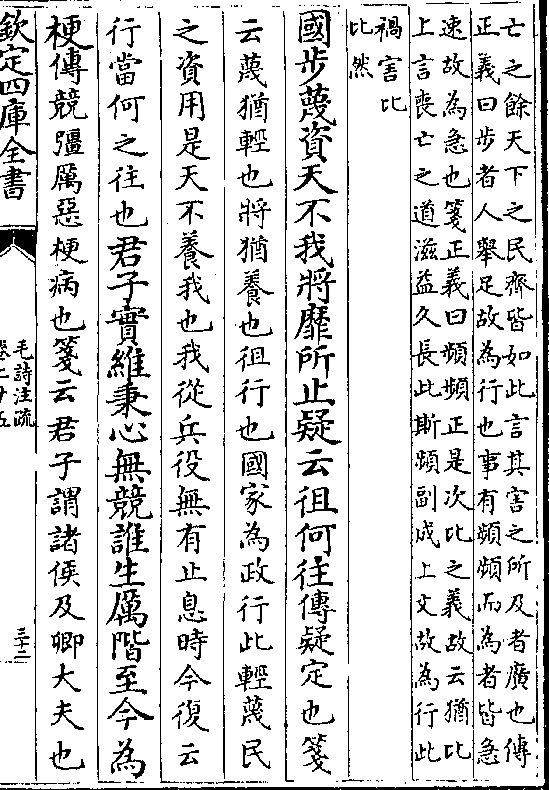 亡之餘天下之民齊皆如此言其害之所及者廣也傳
正義曰步者人舉足故為行也事有頻頻而為者皆急
速故為急也箋正義曰頻頻正是次比之義故云猶比
上言喪亡之道滋益久長此斯頻副成上文故為行此
禍害比
比然
國步蔑資天不我將靡所止疑云徂何往傳疑定也箋
云蔑猶輕也將猶養也徂行也國家為政行此輕蔑民
之資用是天不養我也我從兵役無有止息時今復云
行當何之往也君子實維秉心無競誰生厲階至今為
梗傳競彊厲惡梗病也箋云君子謂諸侯及卿大夫也
欽定四庫全書
毛詩注疏
卷二十五
三十二